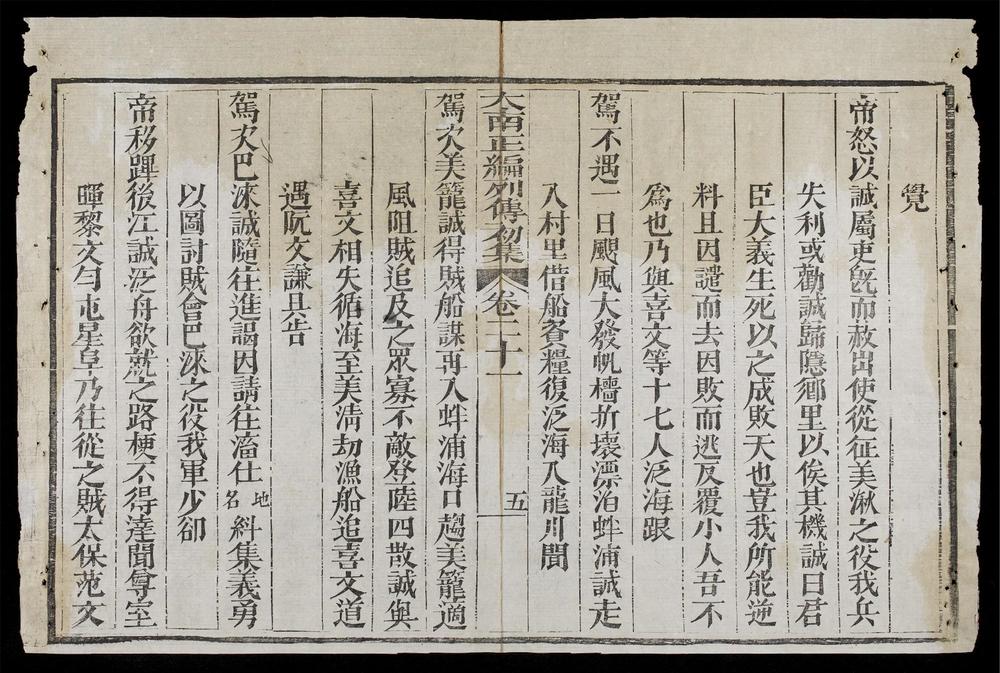 覺
帝怒以誠屬吏旣而赦出使從征美湫之役我兵
失利或勸誠歸隱鄕里以俟其機誠曰君
臣大義生死以之成敗天也豈我所能逆
料且因譴而去因敗而逃反覆小人吾不
爲也乃與喜文等十七人泛海跟
駕不遇一日颶風大發帆檣折壞漂泊蚌浦誠走
入村里借船賫糧復泛海入龍川聞
大南正編列傳初集
卷二十一
五
駕次美籠誠得賊船謀再入蚌浦海口趨美籠適
風阻賊追及之眾寡不敵登陸四散誠與
喜文相失循海至美淸刼漁船追喜文道
遇阮文謙具告
駕次巴淶誠隨往進謁因請往滀仕地名糾集義勇
以圖討賊會巴淶之役我軍少卻
帝移蹕後江誠泛舟欲就之路梗不得達聞尊室
暉黎文勻屯星阜乃往從之賊太保范文